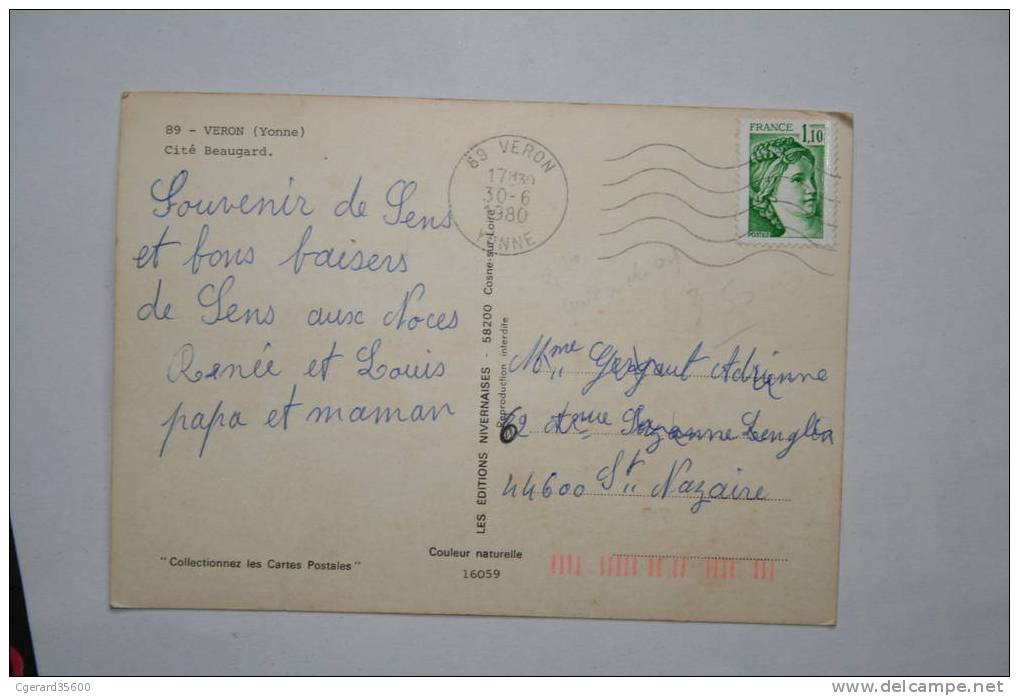 89 - VERON (Yonne)
Cité Beaugard.
Souvenir de Sens
et bons baisers
de Sens aux Noces
Renée et Louis
papa et maman
89 VERON
17H30
30-6
1980
YONNE
FRANCE
1,10
POSTES
LES ÉDITIONS NIVERNAISES - 58200 Cosne-sur-Loire
Reproduction interdite
Mme Gergaut Adrienne
62 Suzanne Lenglen
44600 St Nazaire
"Collectionnez les Cartes Postales"
Couleur naturelle
16059
Cgerard35600
www.delcampe.net